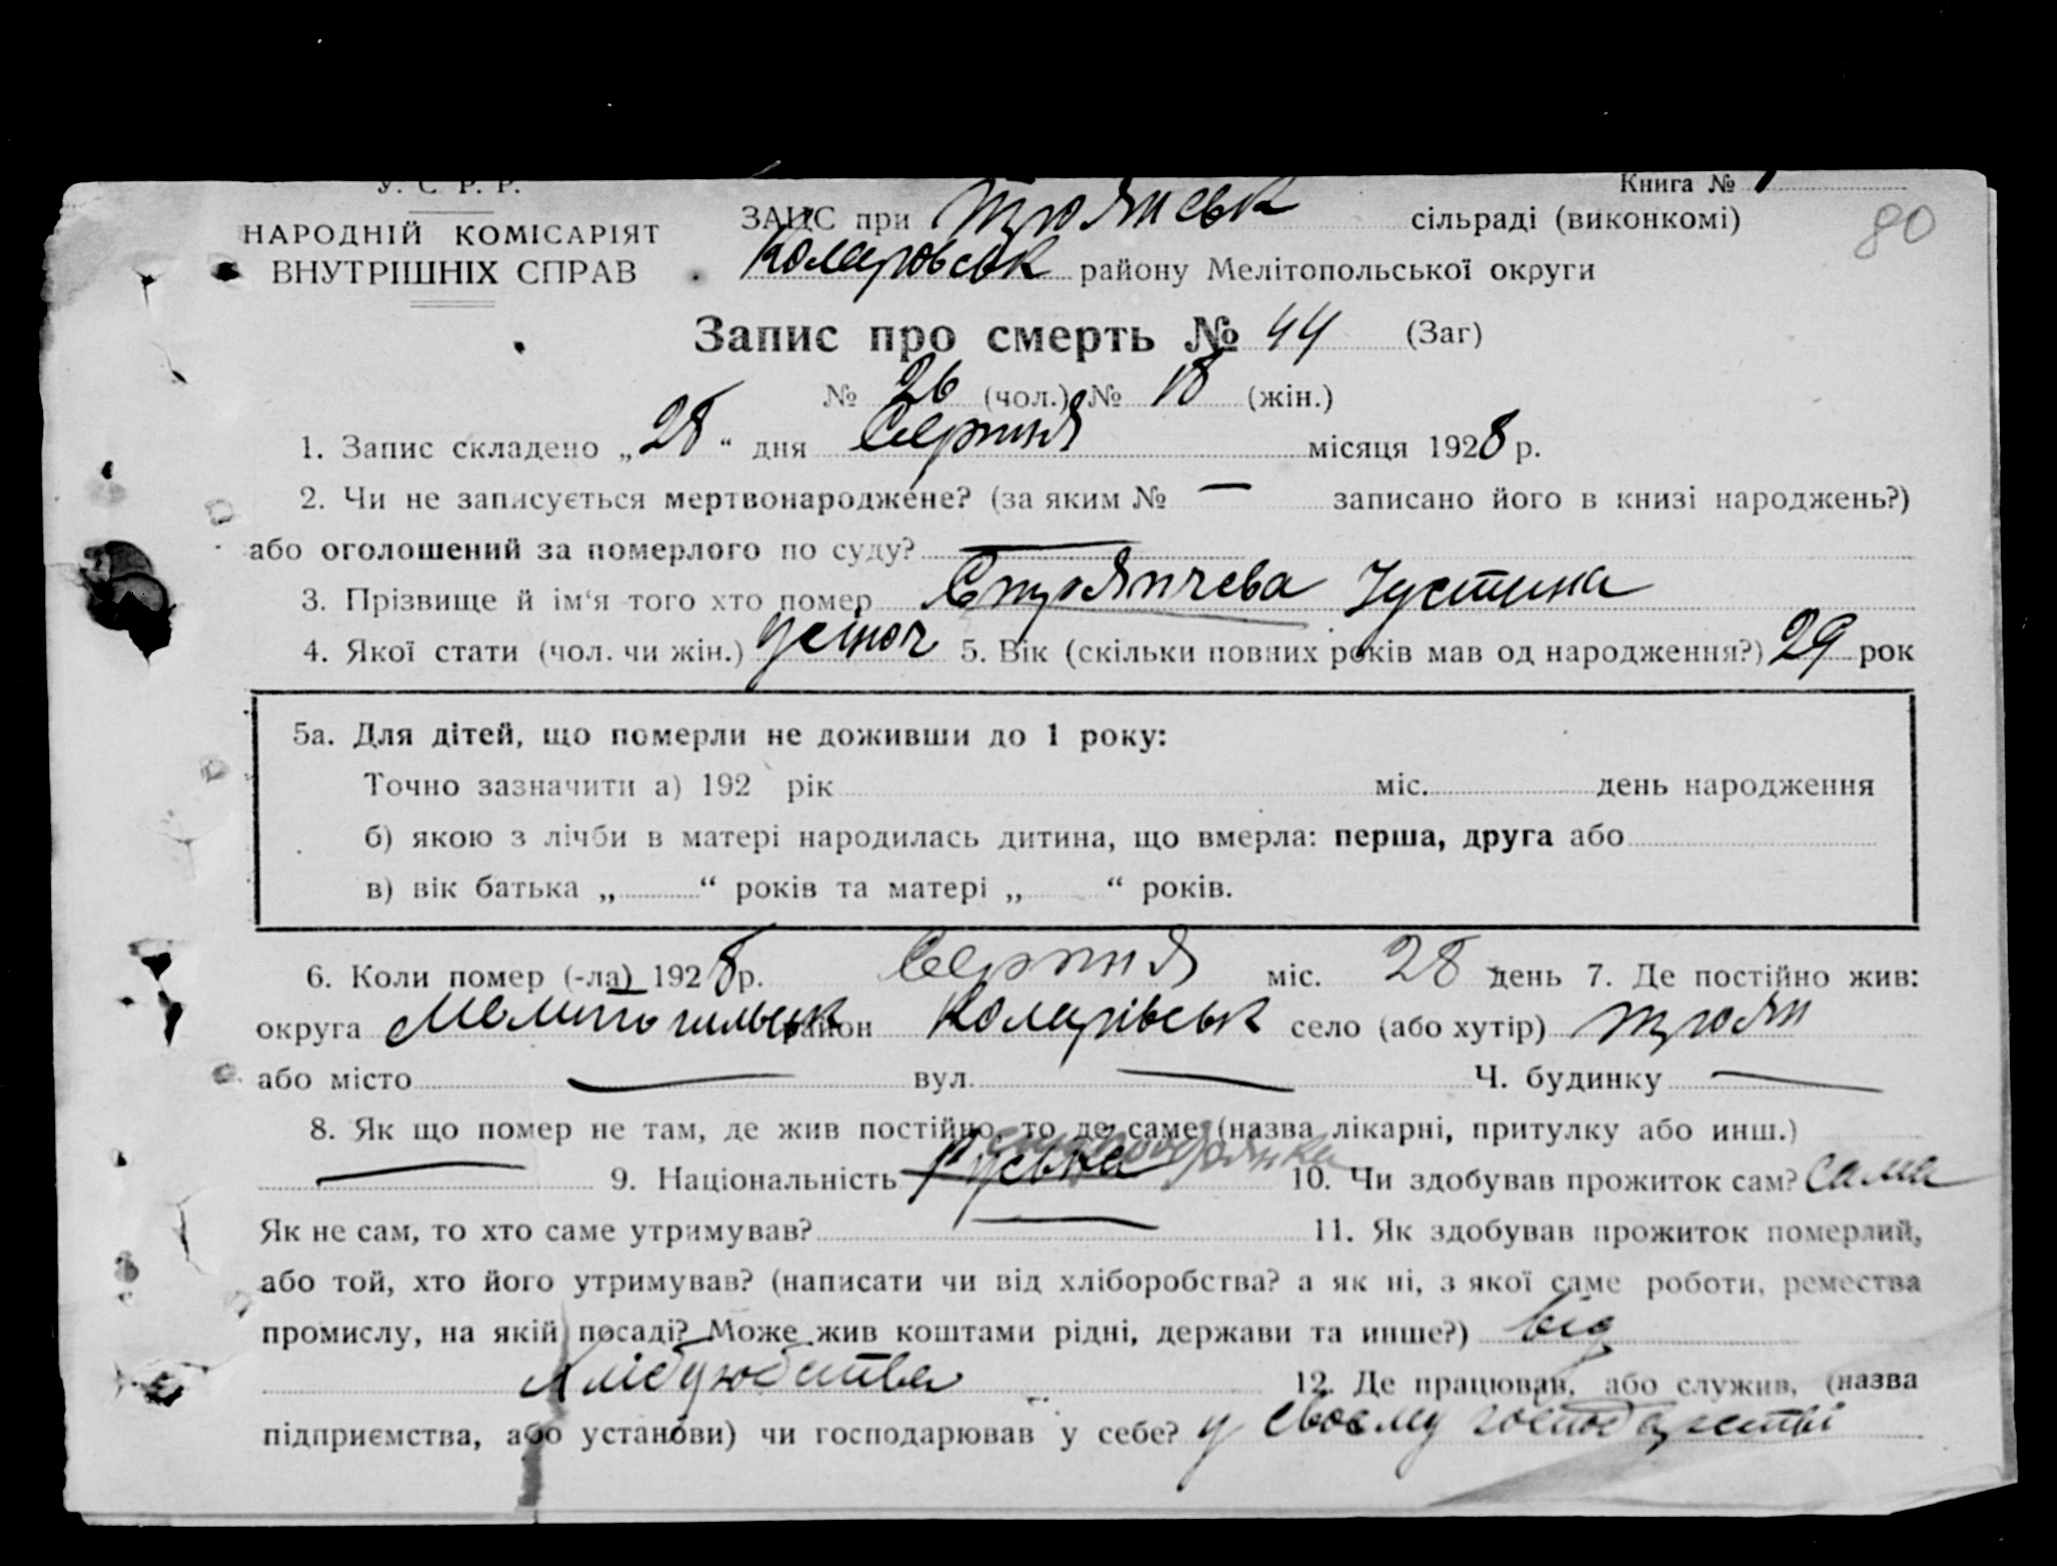 У. С. Р. Р.
НАРОДНІЙ КОМІСАРІЯТ
ВНУТРІШНІХ СПРАВ
Книга № 1
80
ЗАЦС при Троянськ сільраді (виконкомі)
Коларовськ району Мелітопольської округи
Запис про смерть № 44 (Заг)
№ 26 (чол.) № 18 (жін.)
1. Запис складено „28“ дня Серпня місяця 1928 р.
2. Чи не записується мертвонароджене? (за яким № — записано його в книзі народжень?)
або оголошений за померлого по суду? —
3. Прізвище й ім‘я того хто помер Стряпчева Устина
4. Якої стати (чол. чи жін.) 5. Вік (скільки повних років мав од народження?) 29 рок
5а. Для дітей, що померли не доживши до 1 року:
Точно зазначити а) 192 рік міс. день народження
б) якою з лічби в матері народилась дитина, що вмерла: перша, друга або
в) вік батька „ “ років та матері „ “ років.
6. Коли помер (-ла) 1928 р. Серпня міс. 28 день 7. Де постійно жив:
округа Мелітопільськ район Коларівськ село (або хутір) Троян
або місто — вул. — Ч. будинку —
8. Як що помер не там, де жив постійно, то де саме (назва лікарні, притулку або инш.)
— 9. Національність Руська 10. Чи здобував прожиток сам? сама
Як не сам, то хто саме утримував? — 11. Як здобував прожиток померлий,
або той, хто його утримував? (написати чи від хліборобства? а як ні, з якої саме роботи, ремества
промислу, на якій посаді? Може жив коштами рідні, держави та инше?) від
Хлібуробства 12. Де працював, або служив, (назва
підприємства, або установи) чи господарював у себе? у своєму господарстві